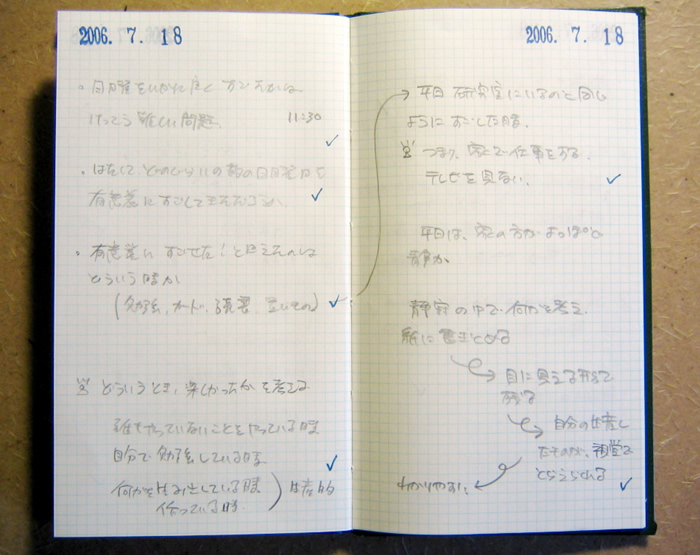 2006. 7. 18
・日曜をいかに良くすごすかは
けっこう難しい問題. 11:30
・はたして どのくらいの数の日曜日を
有意義にすごしてきただろうか.
・有意義に すごせた！と思えるのは
どういう時か
(勉強, カード, 読書, 書きもの)
どういうとき, 楽しかったか を考える
誰もやっていないことをやっている時
自分で勉強している時
何かを生み出している時
作っている時 生産的
2006. 7. 18
平日 研究室にいるのと同じ
ようにすごした時.
つまり, 家で仕事をする.
テレビを見ない.
平日は, 家の方がよっぽど
静か.
静寂の中で何かを考え,
紙に書きとめる
目に見える形で
残る
自分の生産し
たものが, 視覚で
とらえられる
わかりやすい.